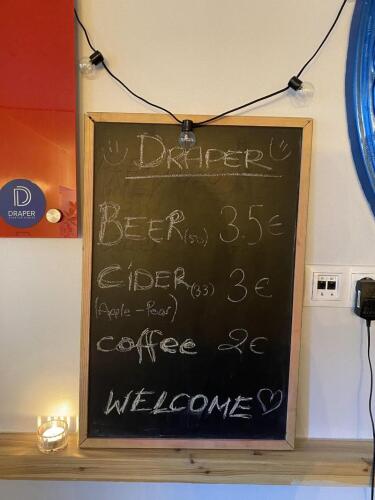 DRAPER
BEER (50) 3.5€
CIDER (33) 3€
(Apple - Pear)
coffee 2€
WELCOME
D
DRAPER